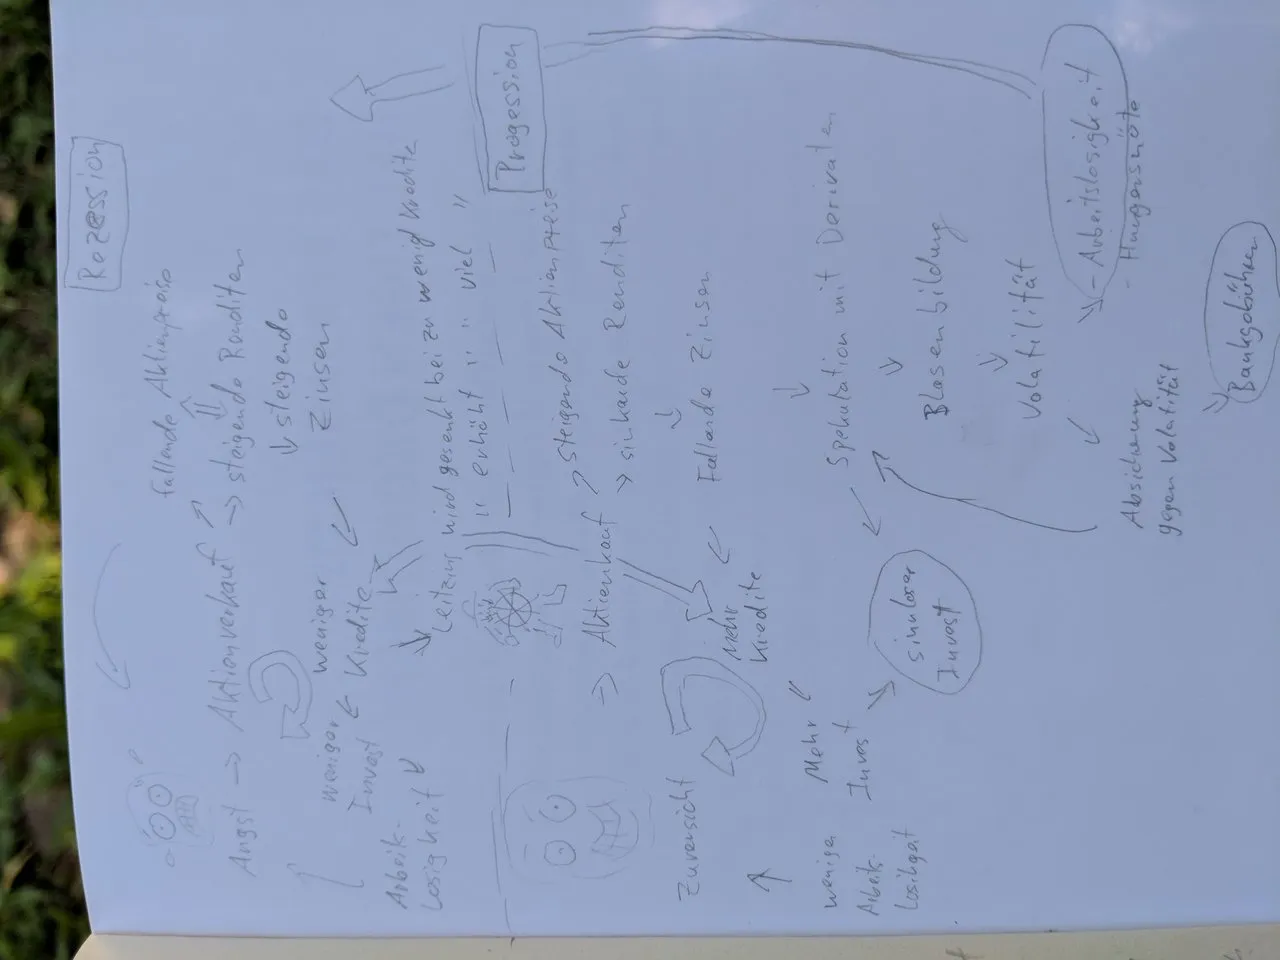 Rezession
fallende Aktienpreise
Angst → Aktienverkauf ↗
→ steigende Renditen
↓ steigende
Zinsen
weniger
Kredite
weniger
Invest
Arbeits-
losigkeit
Leitzins wird gesenkt bei zu wenig Kredite
" erhöht " " viel "
Progession
→ Aktienkauf ↗ steigende Aktienpreise
↘ sinkende Renditen
↓
Fallende Zinsen
Mehr
Kredite
Zuversicht
Mehr
Invest
weniger
Arbeits-
losihgeit
↓
Spekulation mit Derivaten
↓
Blasenbildung
sinnloser
Invest
↓
Volatilität
- Arbeitslosigkeit
- Hungersnöte
Absicherung
gegen Volatilität
Bankgebühren